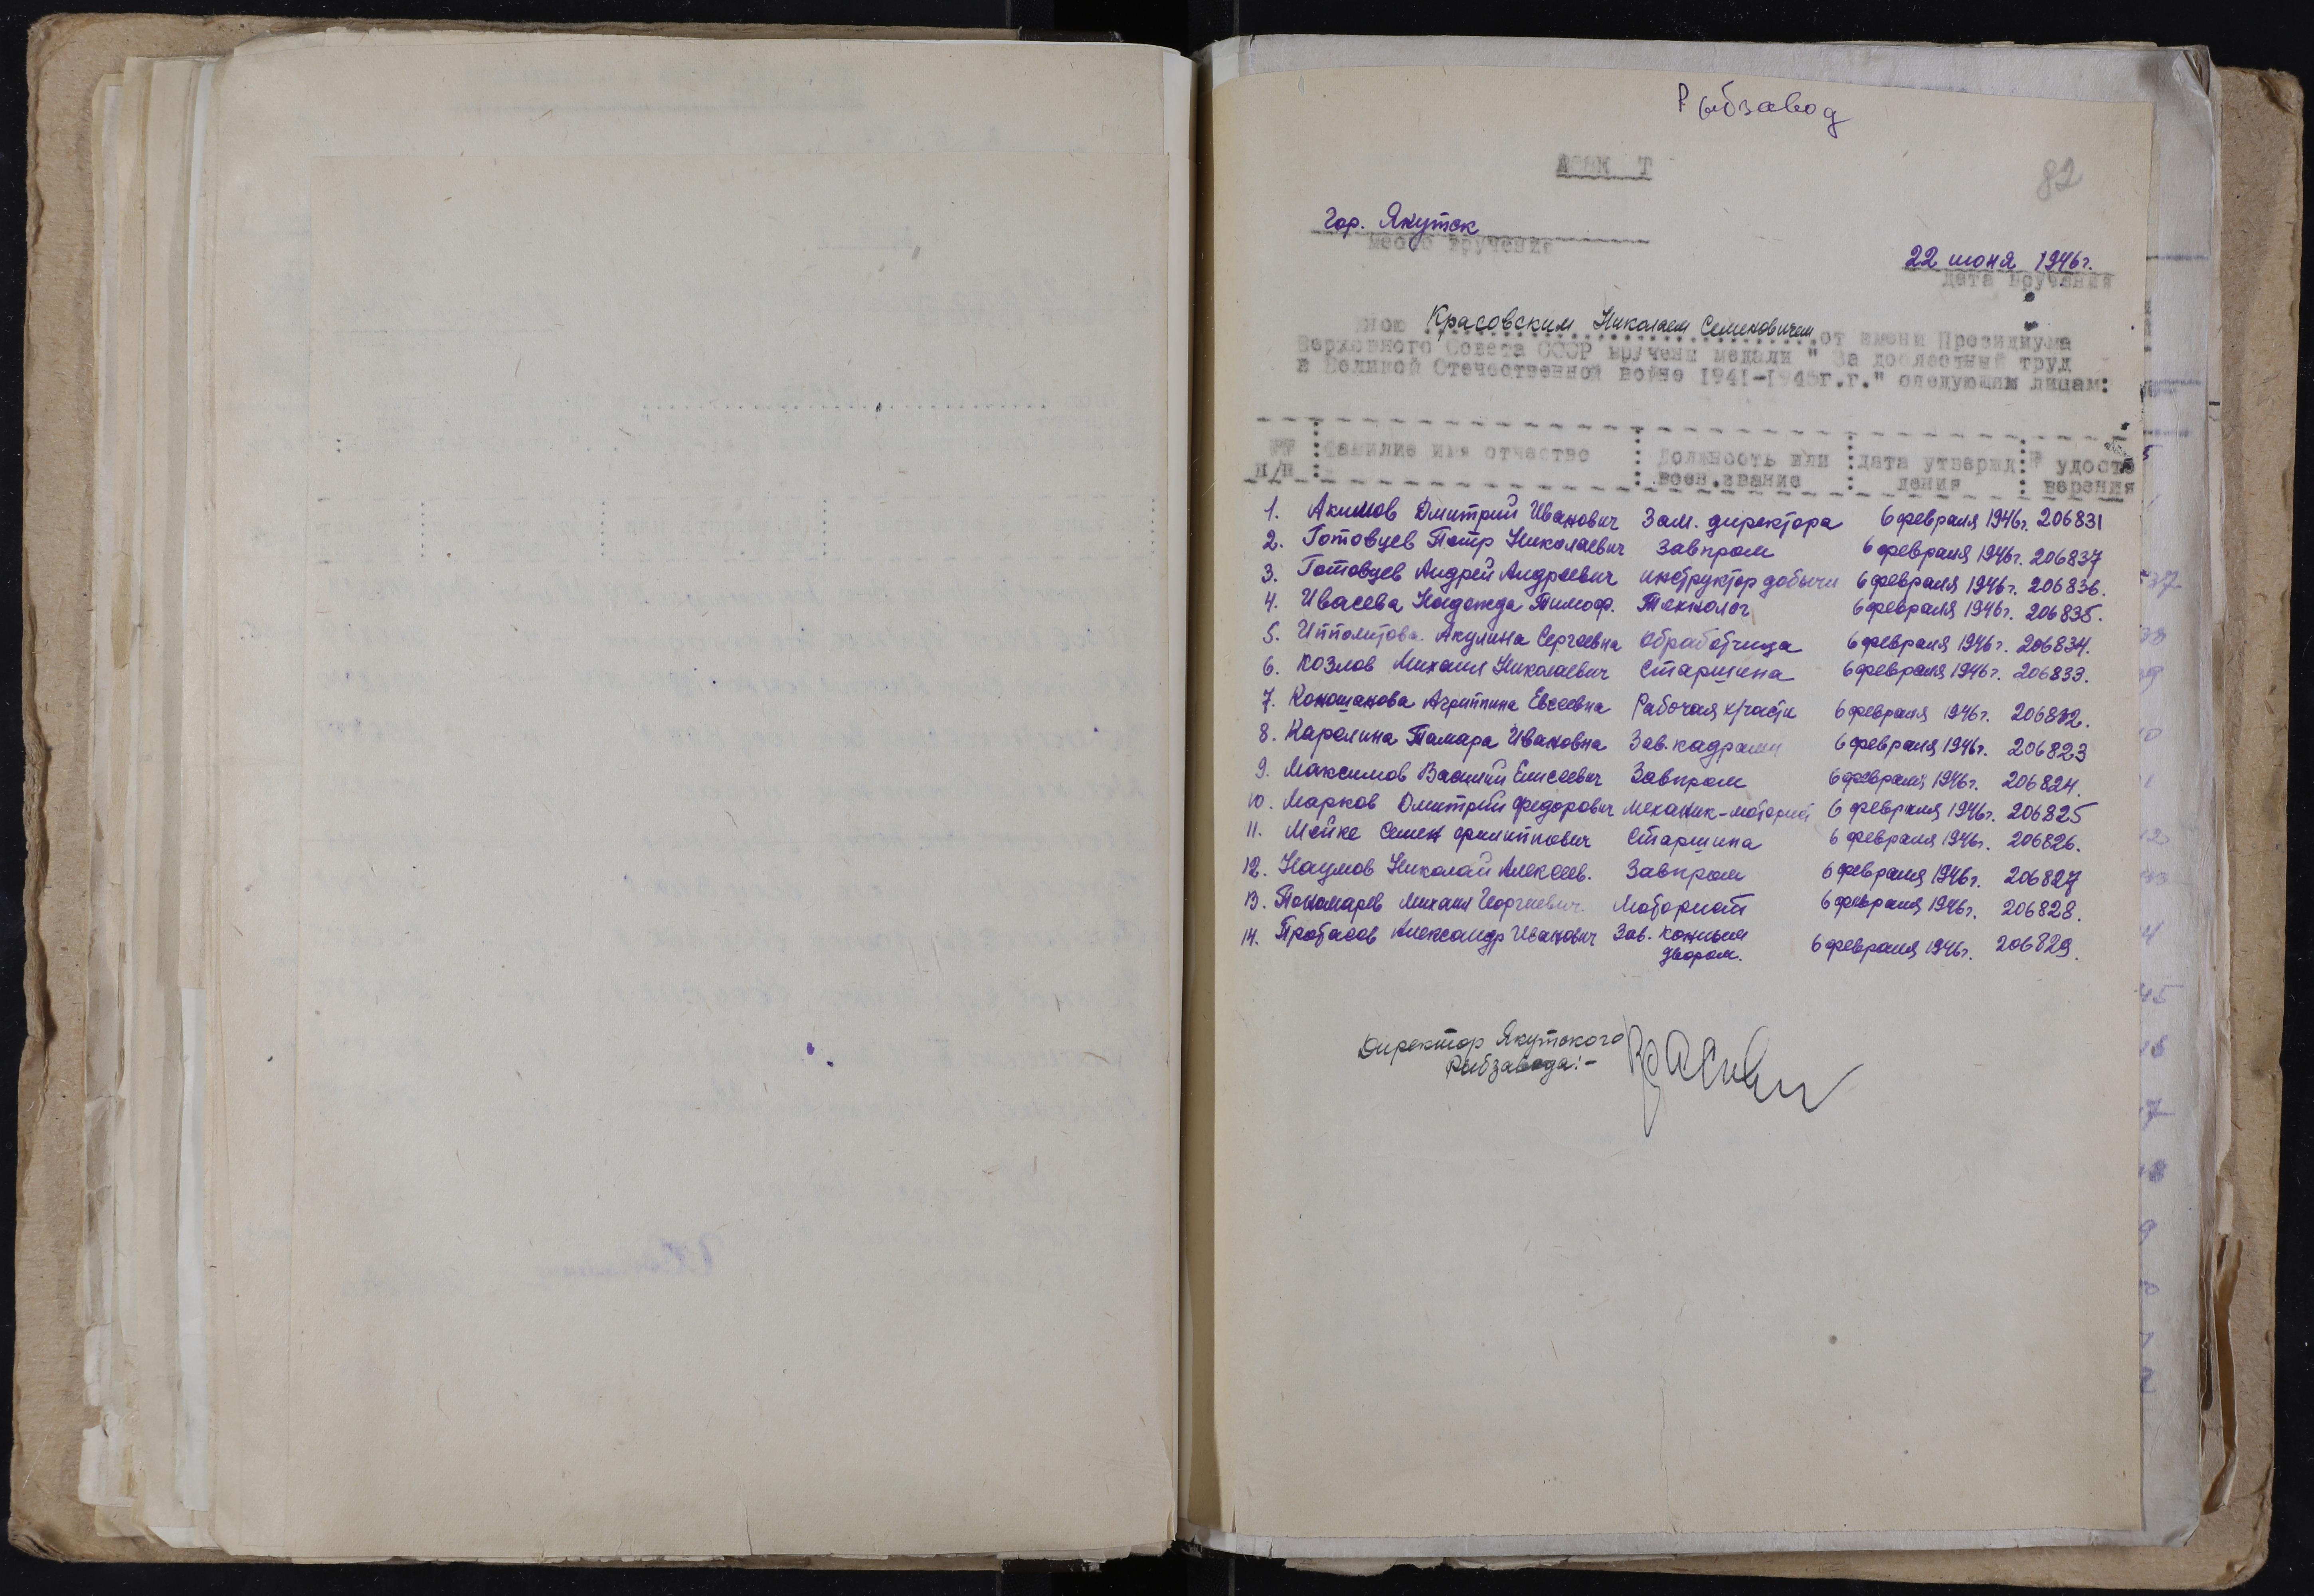 Рыбзавод
А К Т
82
Гор. Якутск
место вручения
22 июня 1946 г.
дата вручения
Мною Красовским Николаем Семеновичем от имени Президиума
Верховного Совета СССР вручены медали "За доблестный труд
в Великой Отечественной войне 1941-1945г.г." следующим лицам:
№№ п/п фамилие имя отчество Должность или воен.звание дата утверждения № удостоверения
1. Акимов Дмитрий Иванович Зам. директора 6 февраля 1946г. 206831
2. Готовцев Петр Николаевич Завпром 6 февраля 1946г. 206837
3. Готовцев Андрей Андреевич инструктор добычи 6 февраля 1946г. 206836.
4. Ивасева Надежда Тимоф. Технолог 6 февраля 1946г. 206835.
5. Ипполитова Акулина Сергеевна Обработчица 6 февраля 1946г. 206834.
6. Козлов Михаил Николаевич Старшина 6 февраля 1946г. 206833.
7. Коношанова Агриппина Евсеевна Рабочая 6 февраля 1946г. 206832.
8. Карелина Тамара Ивановна Зав. кадрами 6 февраля 1946г. 206823
9. Максимов Василий Елисеевич Завпром 6 февраля 1946г. 206824.
10. Марков Дмитрий Федорович Механик-моторист 6 февраля 1946г. 206825
11. Мейке Семен Филиппович Старшина 6 февраля 1946г. 206826.
12. Наумов Николай Алексеев. Завпром 6 февраля 1946г. 206827
13. Пономарев Михаил Георгиевич. Моторист 6 февраля 1946г. 206828.
14. Протасов Александр Иванович Зав. конным двором. 6 февраля 1946г. 206829.
Директор Якутского
Рыбзавода:-